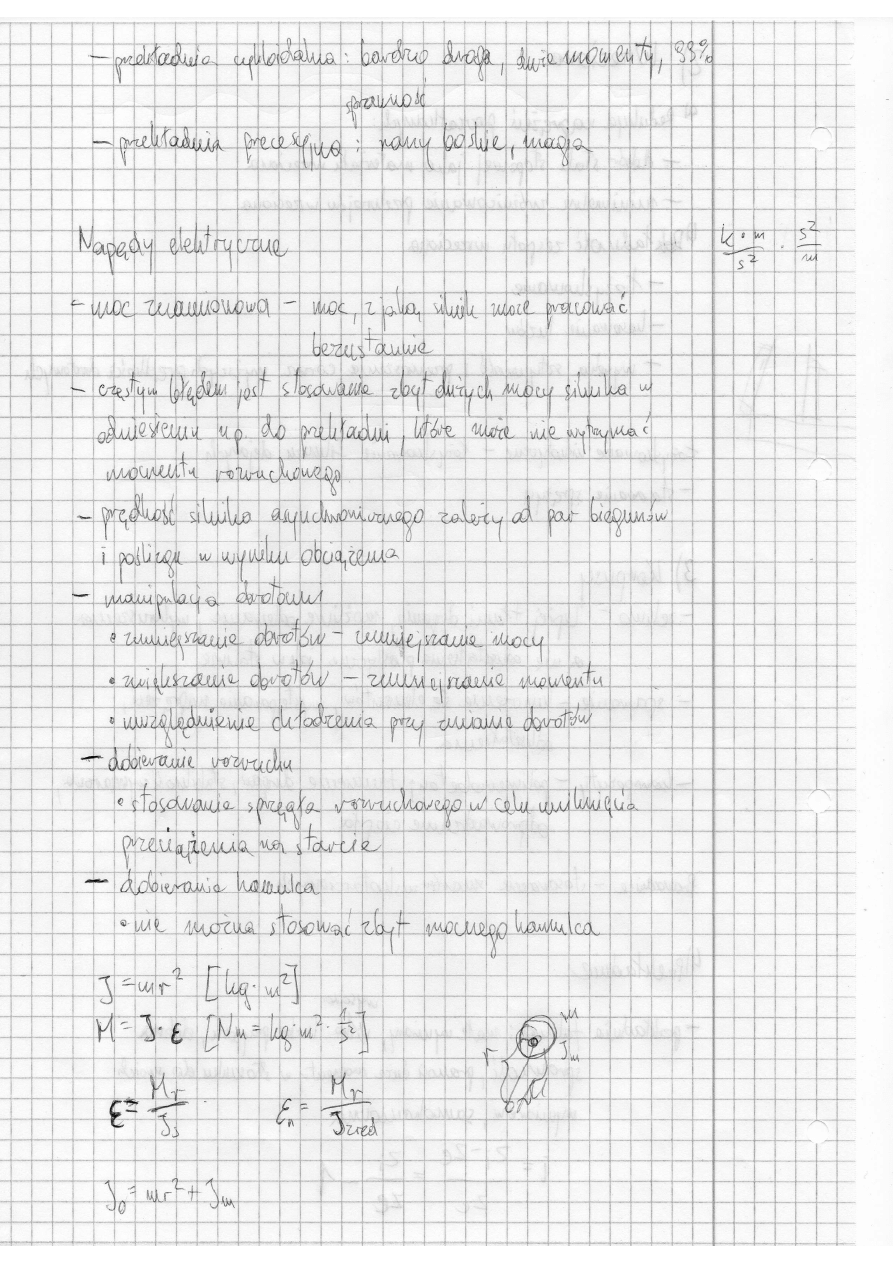 – przekładnia cykloidalna : bardzo droga, duże momenty, 93%
sprawność
– przekładnia precesyjna : rany boskie, magia
Napędy elektryczne
k · m / s² · s² / m
– moc znamionowa – moc, z jaką silnik może pracować
bezustannie
– częstym błędem jest stosowanie zbyt dużych mocy silnika w
odniesieniu np. do przekładni, które może nie wytrzymać
momentu rozruchowego
– prędkość silnika asynchronicznego zależy od par biegunów
i poślizgu w wyniku obciążenia
– manipulacja obrotami
• zmniejszanie obrotów – zmniejszanie mocy
• zwiększanie obrotów – zmniejszanie momentu
• uwzględnienie chłodzenia przy zmianie obrotów
– dobieranie rozruchu
• stosowanie sprzęgła rozruchowego w celu uniknięcia
przeciążenia na starcie
– dobieranie hamulca
• nie można stosować zbyt mocnego hamulca
J = mr² [kg · m²]
M = J · ε [Nm = kg · m² · 1/s²]
m
r
Jm
ε = Mr / Js   εn = Mr / Jzred
J₀ = mr² + Jm